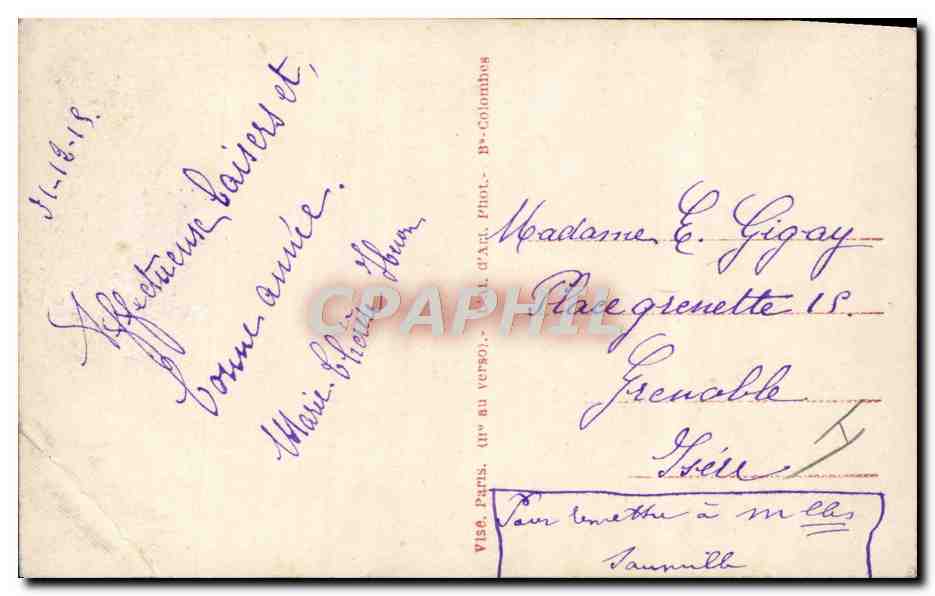 31-12-15.
Affectueux baisers et,
bonne année.
Marie-Thérèse
Visé, Paris. (nº au verso).- d'Art. Phot.- Bs-Colombes
CPAPHIL
Madame E. Gigay
Place grenette 15.
Grenoble
Isère
Pour remettre à Mlles